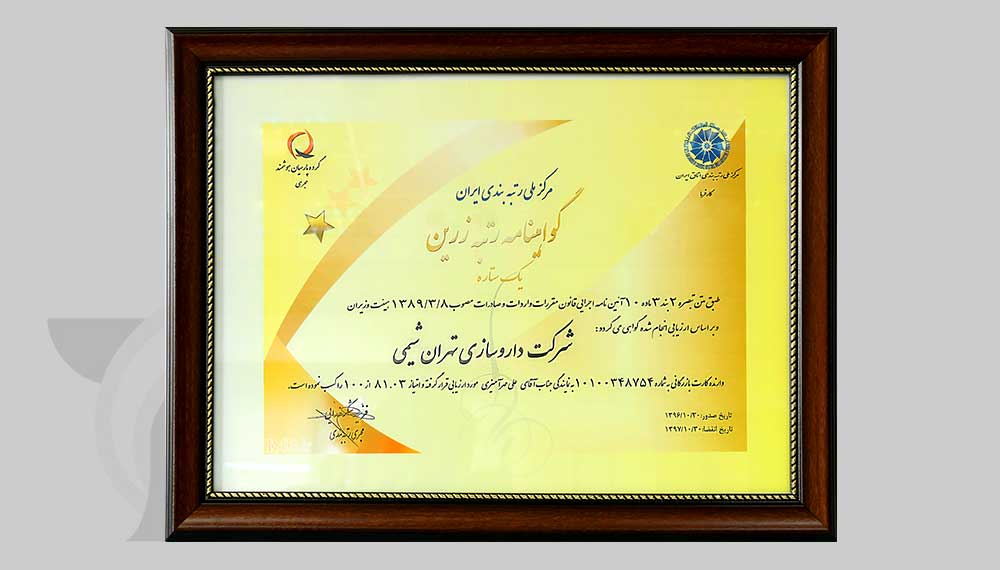 مرکز ملی رتبه بندی اتاق ایران
کارفرما
گروه پارسیان هوشمند
مجری
مرکز ملی رتبه بندی ایران
گواهینامه رتبه زرین
یک ستاره
طبق متن تبصره ۲ بند ۳ ماده ۱۰ آئین نامه اجرایی قانون مقررات واردات و صادرات مصوب ۱۳۸۹/۳/۸ هیئت وزیران
و بر اساس ارزیابی انجام شده گواهی می گردد:
شرکت داروسازی تهران شیمی
دارنده کارت بازرگانی به شماره ۱۰۱۰۰۳۴۸۷۵۴ به نمایندگی جناب آقای علی مورد ارزیابی قرار گرفته و امتیاز ۸۱.۰۳ از ۱۰۰ را کسب نموده است.
تاریخ صدور: ۱۳۹۶/۱۰/۳۰
تاریخ انقضا: ۱۳۹۷/۱۰/۳۰
مجری رتبه بندی